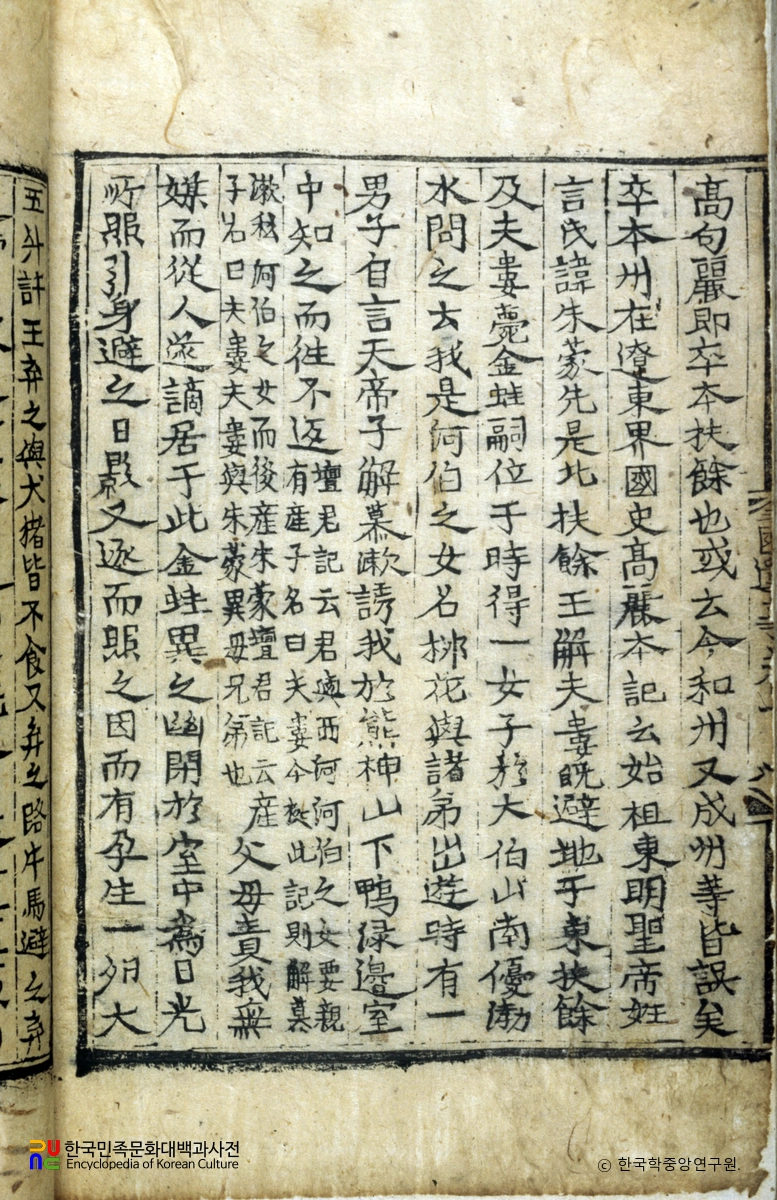 高句麗即卒本扶餘也或云今和州又成州等皆誤矣
卒本州在遼東界國史高麗本記云始祖東明聖帝姓
言氏諱朱蒙先是北扶餘王解夫婁旣避地于東扶餘
及夫婁薨金蛙嗣位于時得一女子於大伯山南優渤
水問之云我是河伯之女名柳花與諸弟出遊時有一
男子自言天帝子解慕漱誘我於熊神山下鴨淥邊室
中知之而往不返
壇君記云君與西河河伯之女要親
有産子名曰夫婁今拠此記則解慕
漱私河伯之女而後産朱蒙壇君記云産
子名曰夫婁夫婁與朱蒙異母兄弟也
父母責我無
媒而從人遂謫居于此金蛙異之幽閉於室中為日光
所照引身避之日影又逐而照之因而有孕生一卵大
五斗許王弃之與犬猪皆不食又弃之路牛馬避之弃
한국민족문화대백과사전
Encyclopedia of Korean Culture
ⓒ 한국학중앙연구원.